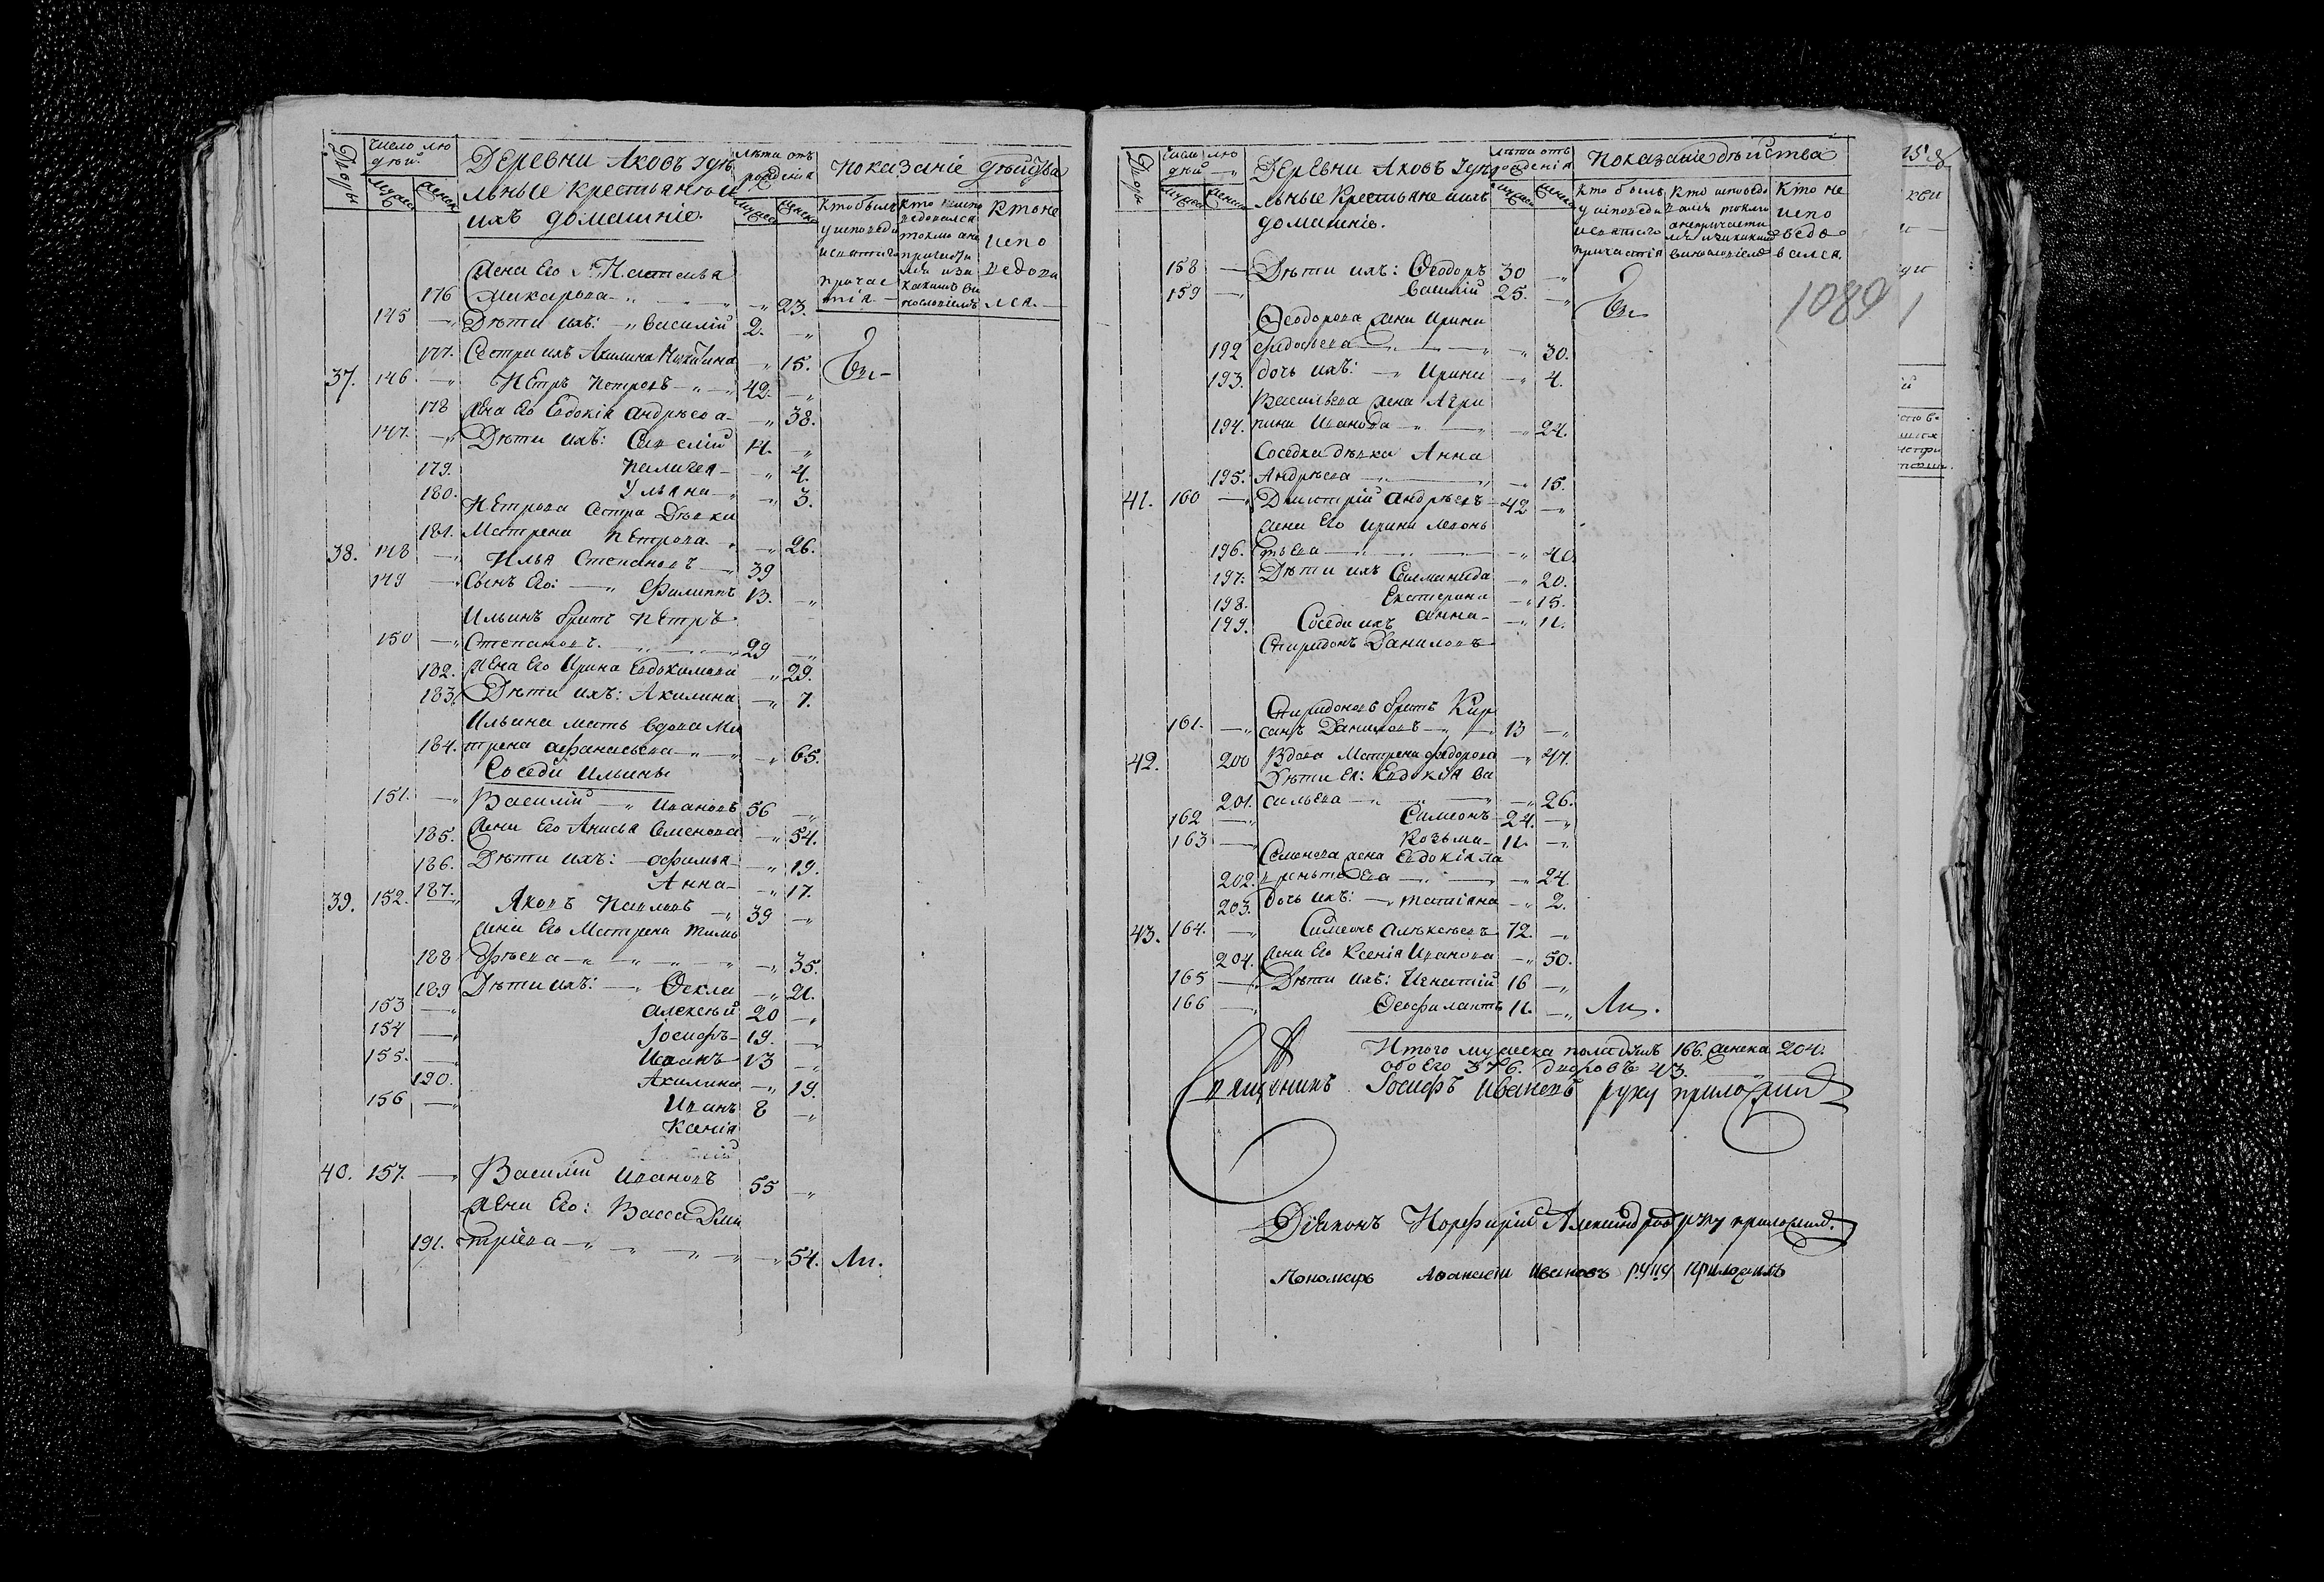 Дворы
число лю
дѣй
мужес
женск
Деревни Яковъ Удѣ
льные крестьянѣ и
ихъ домашніе.
лѣта отъ
рожденія
мужес
женск
показаніе дѣйства
кто былъ
у исповеди
и святаго
причас
тія
кто испо
ведовался
токмо а не
причасти
лся и за
какимъ ви
нословіемъ
кто не
испо
ведова
лся.
жена его Наталья
176 Макарова 23.
145 Дѣти ихъ: Василій 2.
177. Сестра ихъ Акилина Никитина 15.
37. 146 Петръ Петровъ 42.
178 жена его Евдокія Андрѣева 38.
147. Дѣти ихъ: 14.
179. Палагея 4.
180. Ульяна 3.
Петрова сестра дѣвка
181. Матрена Петрова 26.
38. 148 Илья Степановъ 39
149 Сынъ его: Филиппъ 13.
Ильинъ братъ Петръ
150 Степановъ. 29
182. жена его Ирина Евдокимова 29.
183. Дѣти ихъ: Акилина 7.
Ильина мать вдова Ма
184. трена Афанасьева 65.
Соседи Ильины
151. Василій Ивановъ 56
185. жена его Анисья Семенова 54.
186. Дѣти ихъ: Офимья 19.
187. Анна 17.
39. 152. Яковъ Павловъ 39
жена его Матрена Тимо
188 фѣева 35.
189 Дѣти ихъ: Ѳекла 21.
153 Алексѣй 20
154 Іосифъ 19.
155. Иванъ 13
190. Акилина 19.
156 Иванъ 8
Ксенія
40. 157. Василій Ивановъ 55
жена его: Васса Дми
191. тріева 54. Ли.
Дворы
число лю
дѣй
мужес
женск
Деревни Яковъ Удѣ
льные крестьяне и ихъ
домашніе.
лѣта отъ
рожденія
мужес
женск
показаніе дѣйства
кто былъ
у исповеди
и святаго
причастія
кто исповедо
вался токмо
а не причасти
лся и за какимъ
винословіемъ
кто не
испо
ведо
вался.
1089
158 Дѣти ихъ: Ѳеодоръ 30
159 Василій 25.
Ѳеодорова жена Ирина
192 30.
193. дочь ихъ: Ирина 4.
Васильева жена Агри
194. пина Иванова 24.
Соседка дѣвка Анна
195. Андрѣева 15.
41. 160 Димитрій Андрѣевъ 42
жена его Ирина Леонь
196. тьева 40
197. Дѣти ихъ Соломанида 20.
198. Екатерина 15.
199. Анна 11.
Соседи ихъ
Спиридонъ Даниловъ
Спиридоновъ братъ Кир
161. санъ Даниловъ 13
42. 200 Вдова Матрена Федорова 47.
Дѣти ея: Евдокія Ва
201. сильева 26.
162 Симеонъ 24.
163 Козьма 11.
Семенова жена Евдокія Ла
202. врентьева 24.
203. дочь ихъ: Татіана 2.
43. 164. Симеонъ Алѣксѣевъ 72.
204. жена его Ксенія Иванова 50.
165 Дѣти ихъ: Игнатій 16
166 Ѳеофилактъ 11. Ли.
Итого мужеска пола душъ 166. женска 204.
обоего 376. дворовъ 43.
Священникъ Іосифъ Ивановъ руку приложилъ
Діяконъ Порфирій Александровъ руку приложилъ.
Пономарь Аѳанасій Ивановъ руку приложилъ